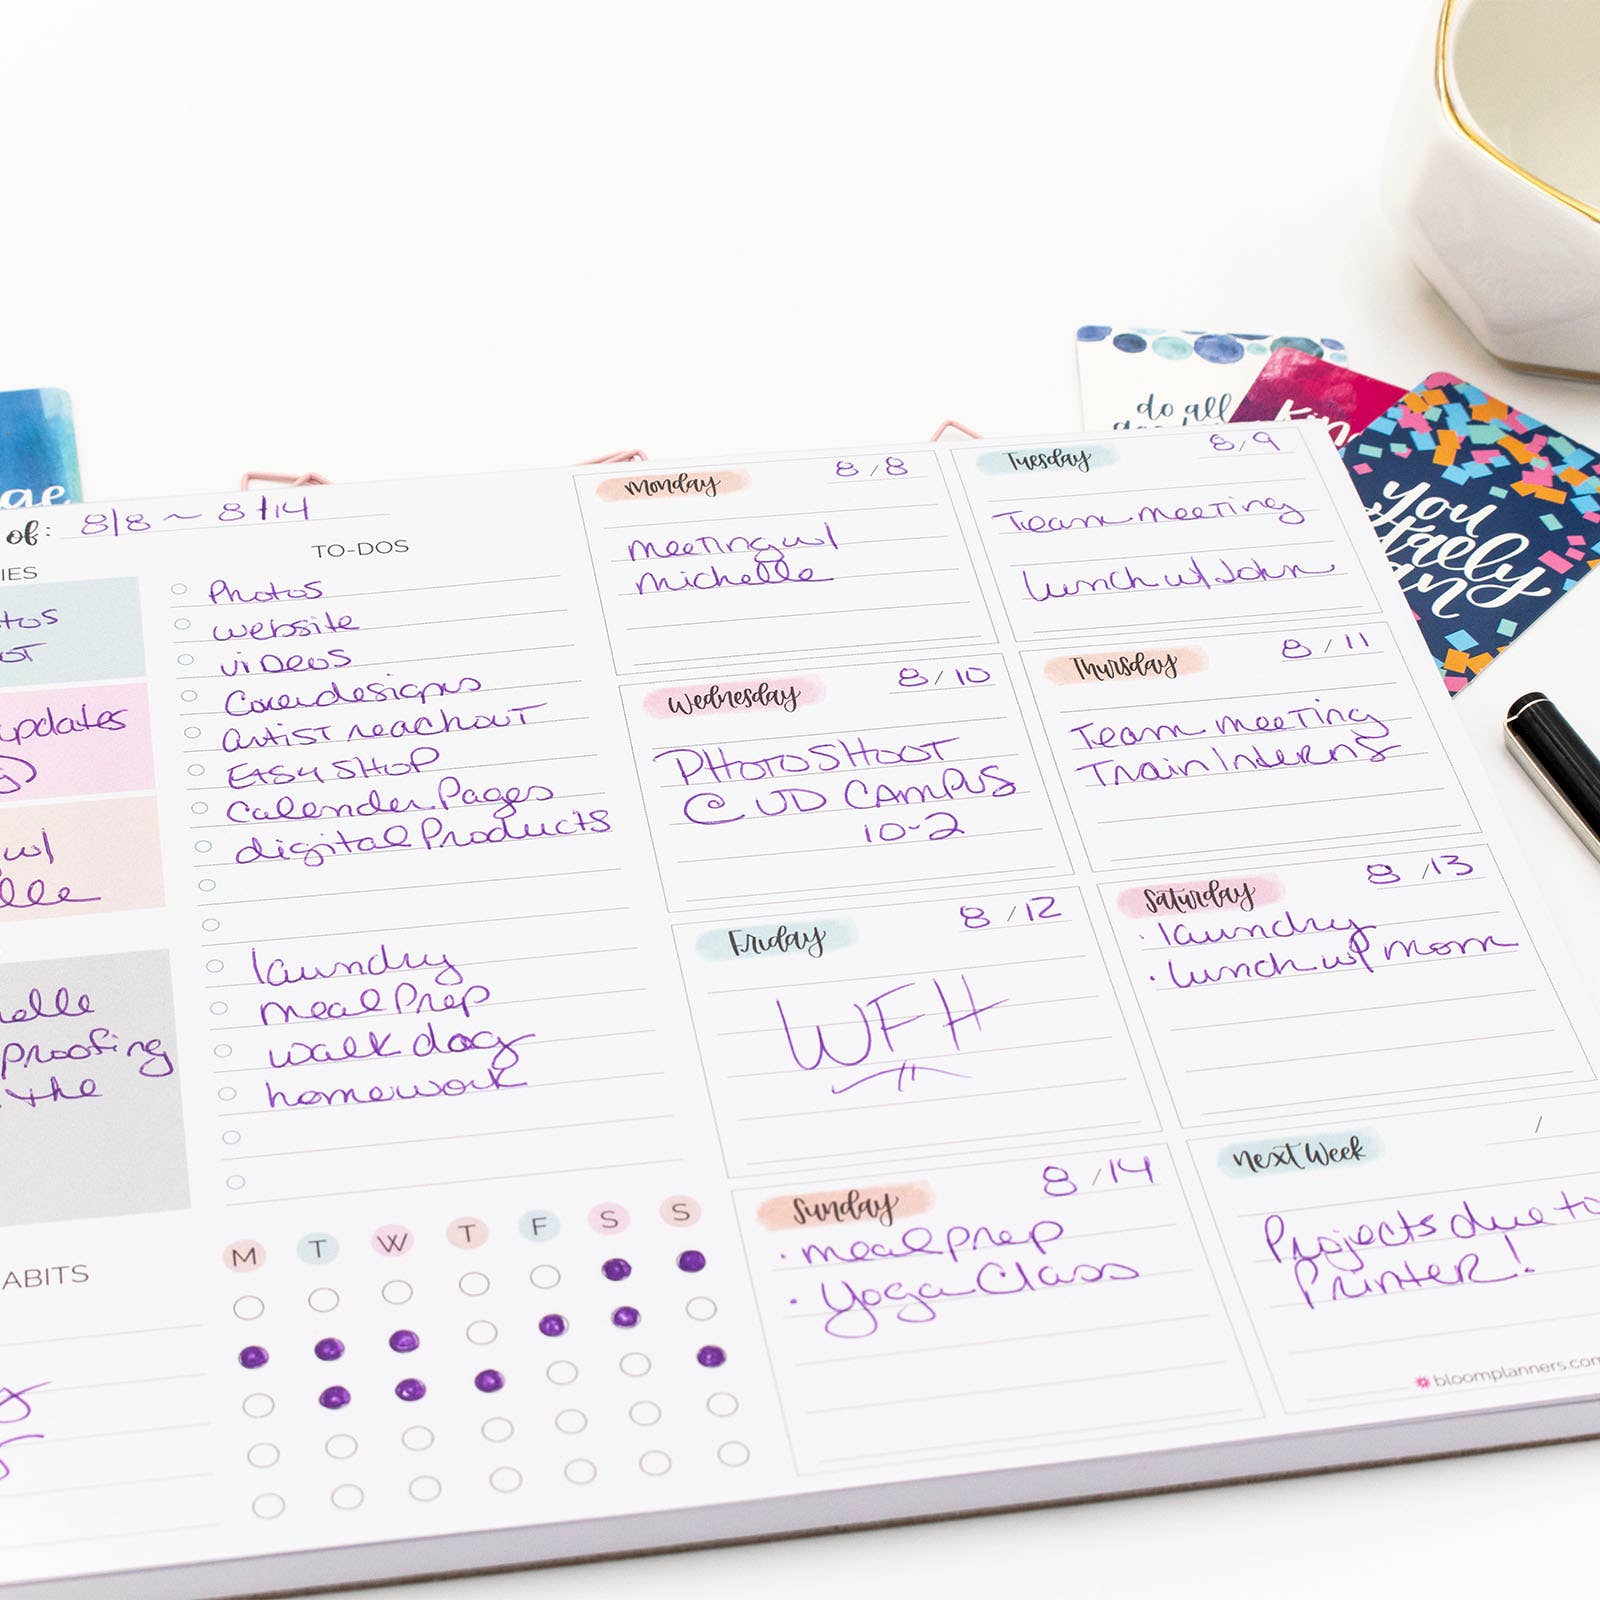 of: 8/8 ~ 8/14
TO-DOS
Photos
website
videos
Cover designs
artist reachout
Etsy SHOP
Calender Pages
digital Products
laundry
meal Prep
walk dog
homework
updates
w/
proofing
the
M T W T F S S
Monday 8/8
meeting w/
michelle
Tuesday 8/9
Team meeting
lunch w/ John
Wednesday 8/10
PHOTOSHOOT
@ UD CAMPUS
10-2
Thursday 8/11
Team meeting
Train Interns
Friday 8/12
WFH
Saturday 8/13
· laundry
· lunch w/ mom
Sunday 8/14
· meal prep
· Yoga Class
next Week /
Projects due to
Printer!
bloomplanners.com
do all
you